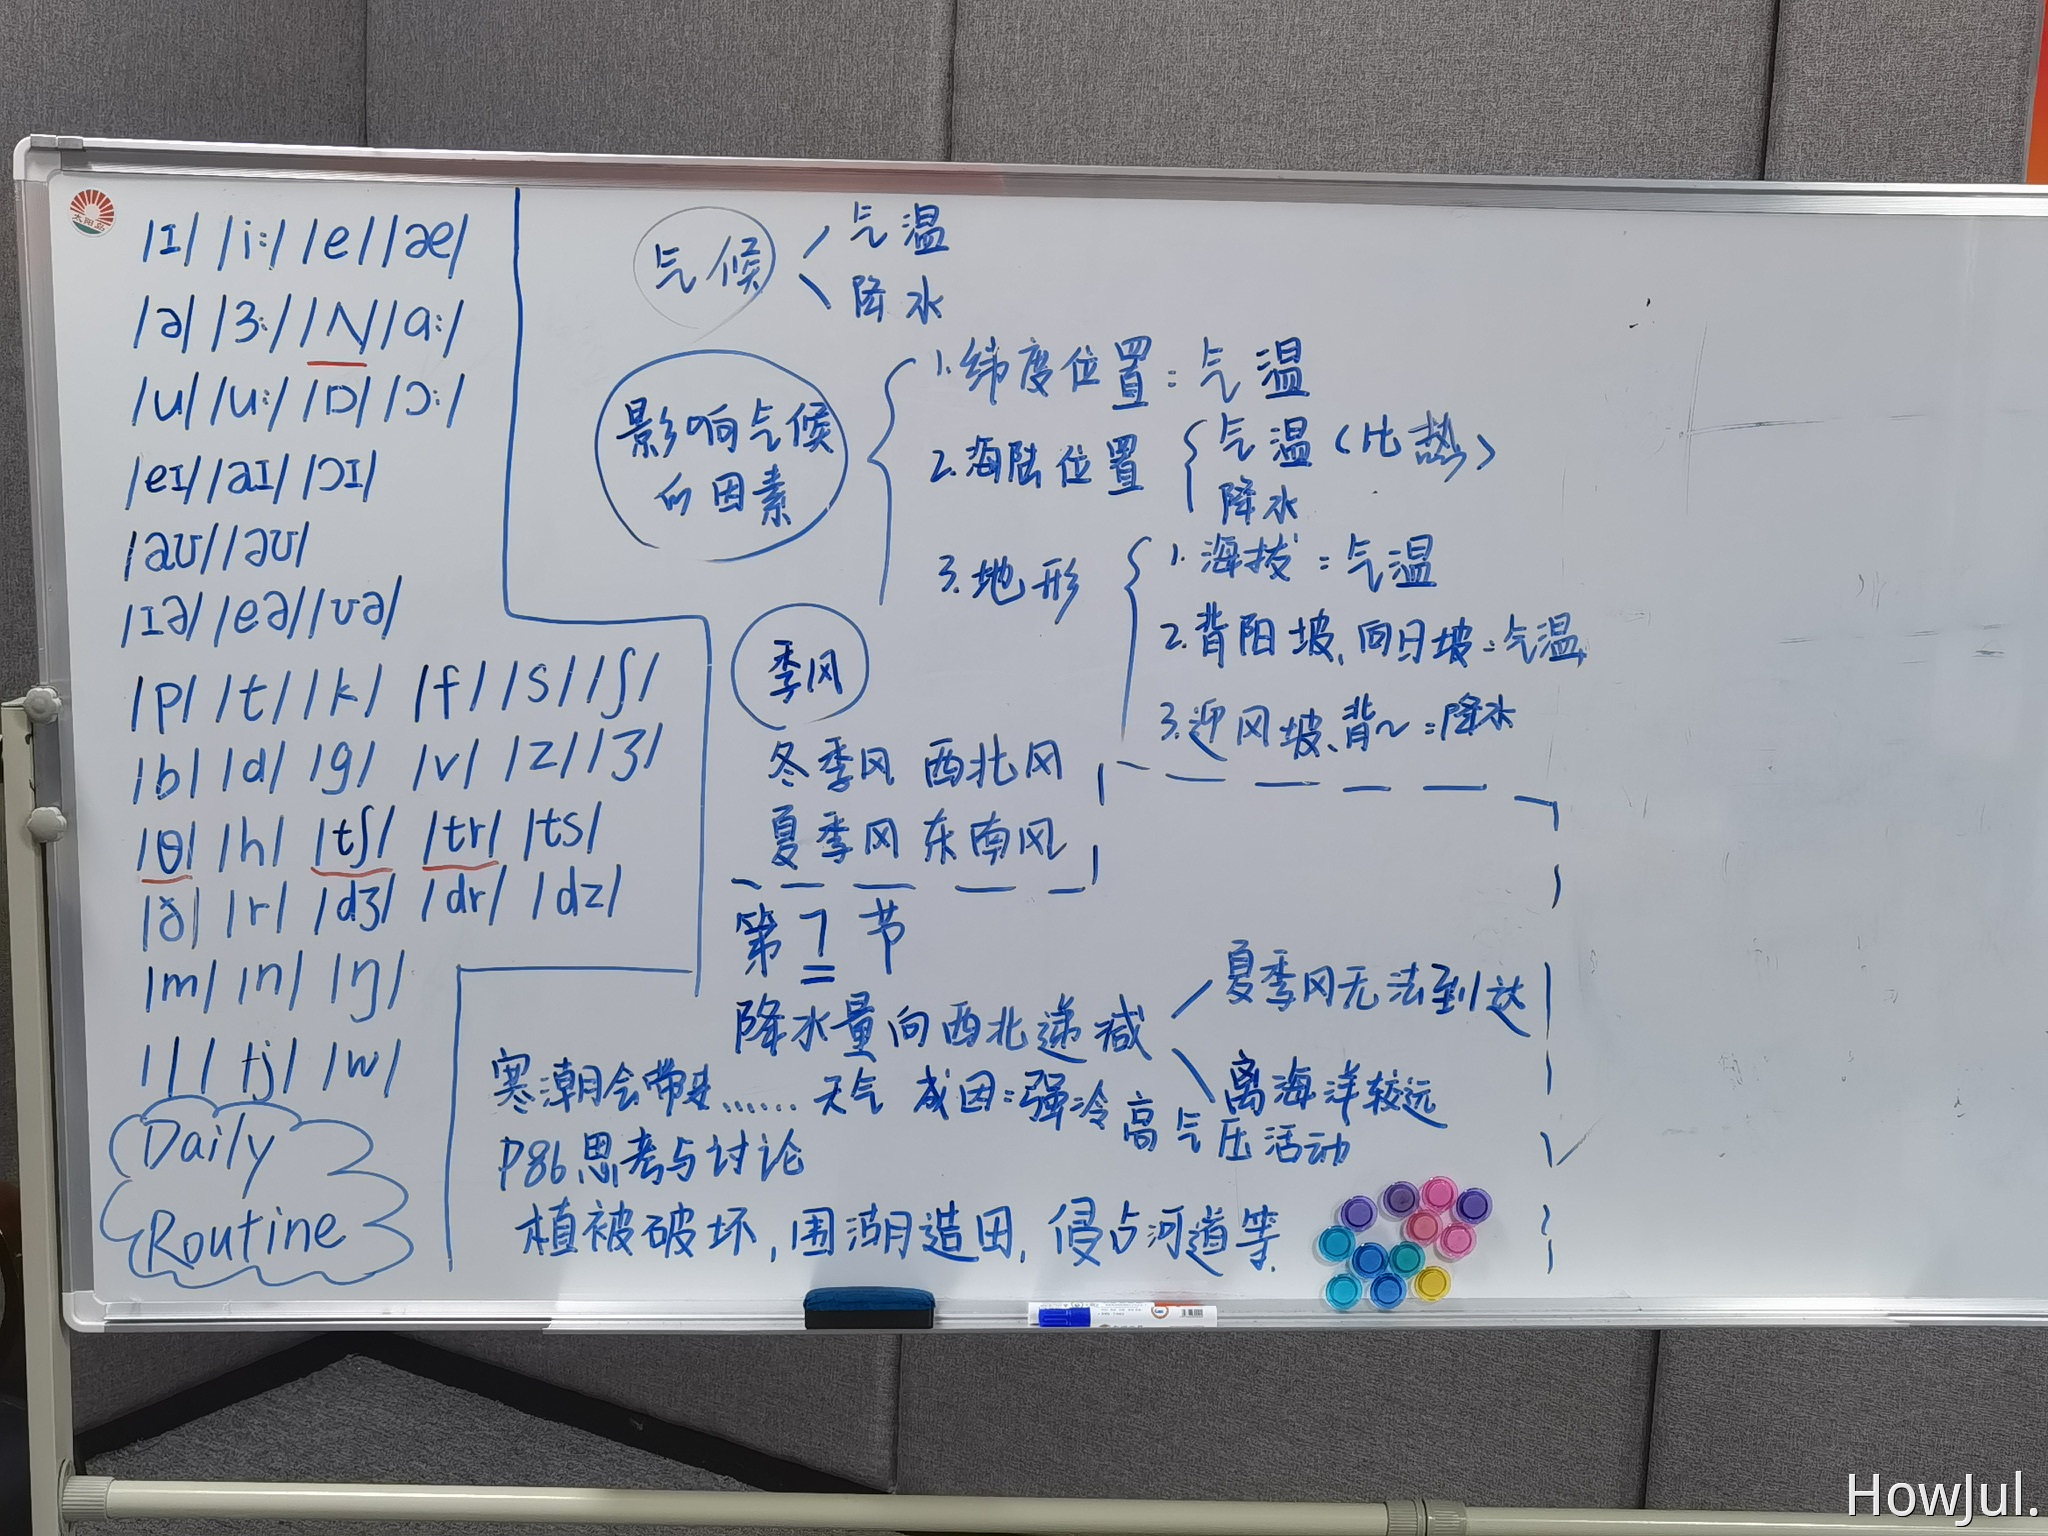 太阳岛
/ɪ/ /i:/ /e/ /æ/
/ə/ /ɜ:/ /ʌ/ /ɑ:/
/u/ /u:/ /ɒ/ /ɔ:/
/eɪ/ /aɪ/ /ɔɪ/
/aʊ/ /əʊ/
/ɪə/ /eə/ /ʊə/
/p/ /t/ /k/ /f/ /s/ /ʃ/
/b/ /d/ /g/ /v/ /z/ /ʒ/
/θ/ /h/ /tʃ/ /tr/ /ts/
/ð/ /r/ /dʒ/ /dr/ /dz/
/m/ /n/ /ŋ/
/l/ /j/ /w/
Daily
Routine
气候
气温
降水
影响气候
的因素
1.纬度位置:气温
2.海陆位置
气温(比热)
降水
3.地形
1.海拔:气温
2.背阳坡、向日坡:气温
3.迎风坡、背~:降水
季风
冬季风 西北风
夏季风 东南风
第7节
降水量向西北递减
夏季风无法到达
离海洋较远
寒潮会带来......天气 成因:强冷高气压活动
P86思考与讨论
植被破坏,围湖造田,侵占河道等.
HowJul.